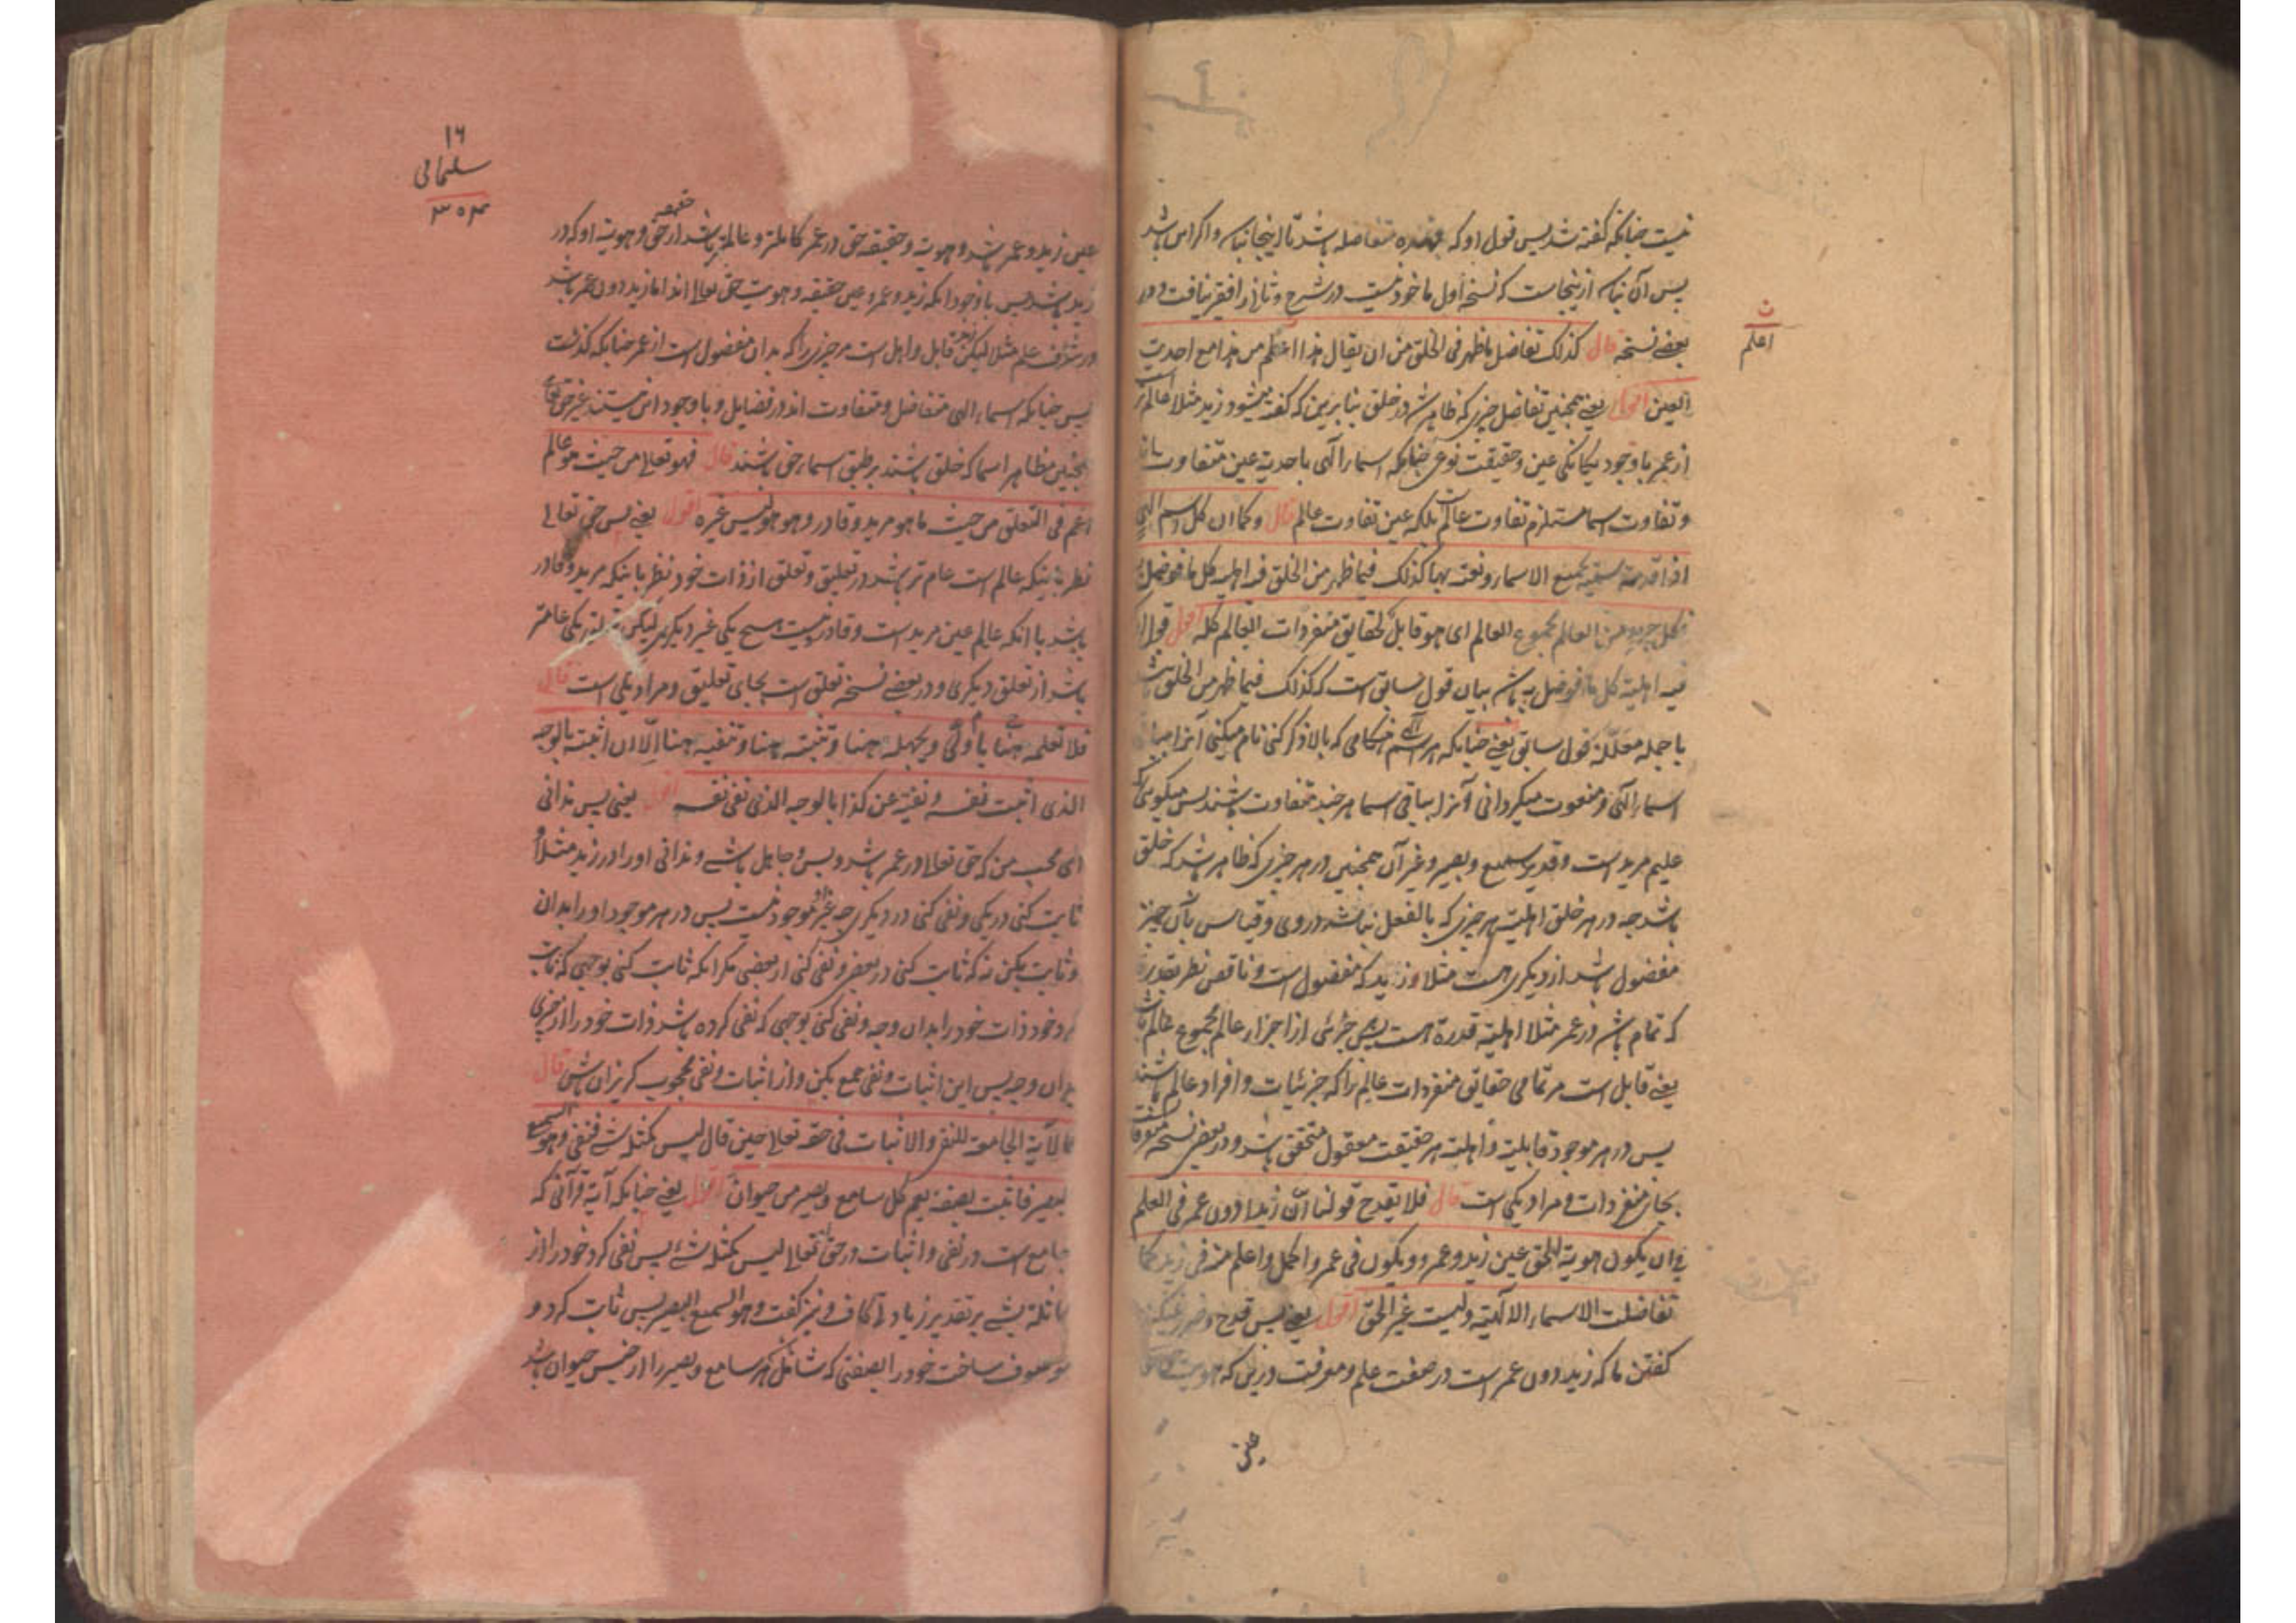 نیست چنانکه گفته شد پس قول او که باشد تا اینجا نباشد و اگر اس باشد
پس آن نباشد ازینجاست که نسخهٔ اول ماخوذ نیست در شرح و ثانی را فقیر نیافت و در
بعضے نسخه قال کذلک تفاضل ما ظهر فی الخلق من ان یقال هذا اعلم من هذا مع احدیت
ن
اعلم
العین اقول یعنے همچنین تفاضل چیزی که ظاهر شد در خلق بنا برین که گفته میشود زید مثلا عالم تر است
از عمر با وجود یگانگی عین و حقیقت نوعی چنانکه اسما الهی با احدیة عین متفاوت باشند
و تفاوت اسما مستلزم تفاوت عالم است بلکه عین تفاوت عالم قال و کما ان کل اسم الهی
اذا قدمته سمیته بجمیع الاسماء و نعته بها کذلک فیما ظهر من الخلق فیه اهلیة کل ما فوضل به
فکل جزء من العالم مجموع العالم ای هو قابل لحقایق متفردات العالم کله اقول قول او
فیه اهلیة کل ما فوضل به باشد بیان قول سابق است که کذلک فیما ظهر من الخلق باشد
یا جمله معللهٔ قول سابق یعنے چنانکه هر اسم الهی هنگامی که بالا ذکر کنی نام میکنی آنرا بهمه
اسما الهی و منعوت میگردانی آنرا بباقی اسما هر چند متفاوت باشند پس میگوئی که
علیم مرید است و قدیر سمیع و بصیر و غیر آن همچنین در هر چیزی که ظاهر شد که خلق
باشد چه در هر خلق اهلیت هر چیزی که بالفعل نباشد در وی و قیاس بآن چیز
مفضول باشد از دیگری هست مثلا در زید که مفضول است و ناقص نظر بقدرة
که تمام باشد در عمر مثلا اهلیة قدرة هست پس جزئی از اجزاء عالم مجموع عالم باشد
یعنے قابل است مر تمامی حقایق متفردات عالم را که جزئیات و افراد عالم باشند
پس در هر موجود قابلیة و اهلیة هر حقیقت معقول متحقق باشد و در بعضی نسخه متفرقات است
بجای متفردات و مراد یکی است قال فلا یقدح قولنا ان زیدا دون عمر فی العلم
فی ان یکون هویة الحق عین زید و عمرو و یکون فی عمرو اکمل و اعلم منه فی زید کما
تفاضلت الاسماء الالهیة و لیست غیر الحق اقول یعنے پس قدح و ضرر نمیکند
گفتن ما که زید دون عمر است در صفت علم و معرفت درین که هویت حق
عین
۱۶
سلیمانی
۳۵۳
عین زید و عمر باشد و هویة و حقیقه حق در عمر کاملتر و عالمتر باشد از حق و هویة او که در
حقیقه
زید باشد پس با وجود آنکه زید و عمرو عین حقیقه و هویت حق تعالی اند اما زید دون عمر باشد
در شرف علم مثلا لیکن زید قابل و اهل است مر چیزی را که بدان مفضول است از عمر چنانکه گذشت
پس چنانکه اسماء الهی متفاضل و متفاوت اند در فضایل و با وجود این نیستند غیر حق تعالی
همچنین مظاهر اسما که خلق باشند بر طبق اسماء حق باشند قال فهو تعالی من حیث هو عالم
اعم فی التعلق من حیث ما هو مرید و قادر و هو هو لیس غیره اقول یعنے پس حق تعالی
نظر باینکه عالم است عام تر باشد در تعلیق و تعلق از ذات خود نظر باینکه مرید و قادر
باشد با آنکه عالم عین مرید است و قادر نیست هیچ یکی غیر دیگری لیکن تعلق یکی عام تر
باشد از تعلق دیگری و در بعضے نسخه تعلق است بجای تعلیق و مراد یکی است قال
فلا تعلمه هنا یا ولی و تجهله هنا و تثبته هنا و تنفیه هنا الا ان اثبته بالوجه
الذی اثبت نفسه و نفیته عن کذا بالوجه الذی نفی نفسه اقول یعنی پس ندانی
ای محب من که حق تعالی در عمر باشد و بس و جاهل باشے و ندانی او را در زید مثلا و
ثابت کنی در یکی و نفی کنی در دیگری چه غیر او موجود نیست پس در هر موجود او را بدان
و ثابت بکن نه که ثابت کنی در بعض و نفی کنی از بعضی مگر آنکه ثابت کنی بوجهی که ثابت
کرد خود ذات خود را بدان وجه و نفی کنی بوجهی که نفی کرده باشد ذات خود را از چیزی
بدان وجه پس این اثبات و نفی جمع بکن و از اثبات و نفی محجوب گریزان باش قال
کالآیة الجامعة للنفی و الاثبات فی حقه تعالی حین قال لیس کمثله شے فنفی و هو السمیع
البصیر فاثبت بصفة یعم کل سامع و بصیر من حیوان اقول یعنے چنانکه آیة قرآنی که
جامع است در نفی و اثبات در حق تعالی لیس کمثله شے پس نفی کرد خود را از
مماثلة بشے بر تقدیر زیادة کاف و نیز گفت و هو السمیع البصیر پس ثابت کرد و
موصوف ساخت خود را بصفتی که شامل هر سامع و بصیر را از جنس حیوان باشد